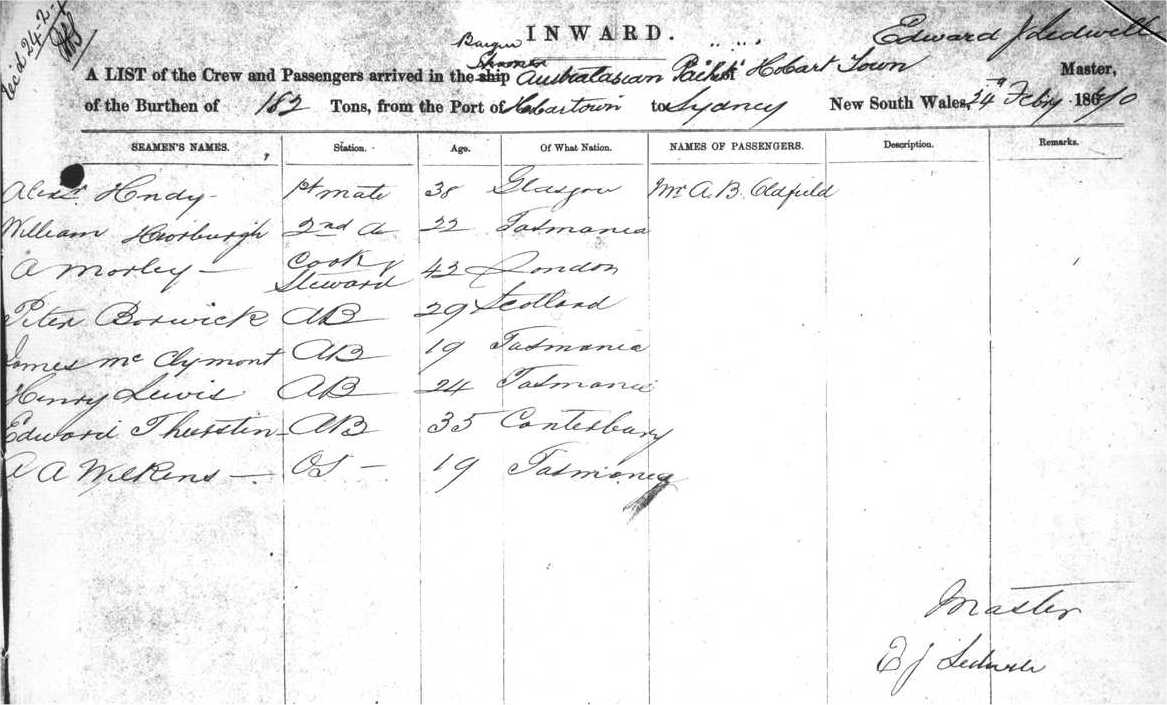 Rec'd 24-2-
INWARD.
Edward J Sedwell
A LIST of the Crew and Passengers arrived in the ship Australasian Packet of Hobart Town Master,
of the Burthen of 182 Tons, from the Port of Hobartown to Sydney New South Wales, 24th Febry 1870
SEAMEN'S NAMES. Station. Age. Of What Nation. NAMES OF PASSENGERS. Description. Remarks.
Alexr Hendy 1st mate 38 Glasgow Mr A. B. Oldfield
William Horburgh 2nd do 22 Tasmania
A Morley Cook & Steward 42 London
Peter Borwick AB 29 Scotland
James Mc Clymont AB 19 Tasmania
Henry Lewis AB 24 Tasmania
Edward Thurstin AB 35 Canterbury
A A Wilkens OS 19 Tasmania
Master
E J Sedwell